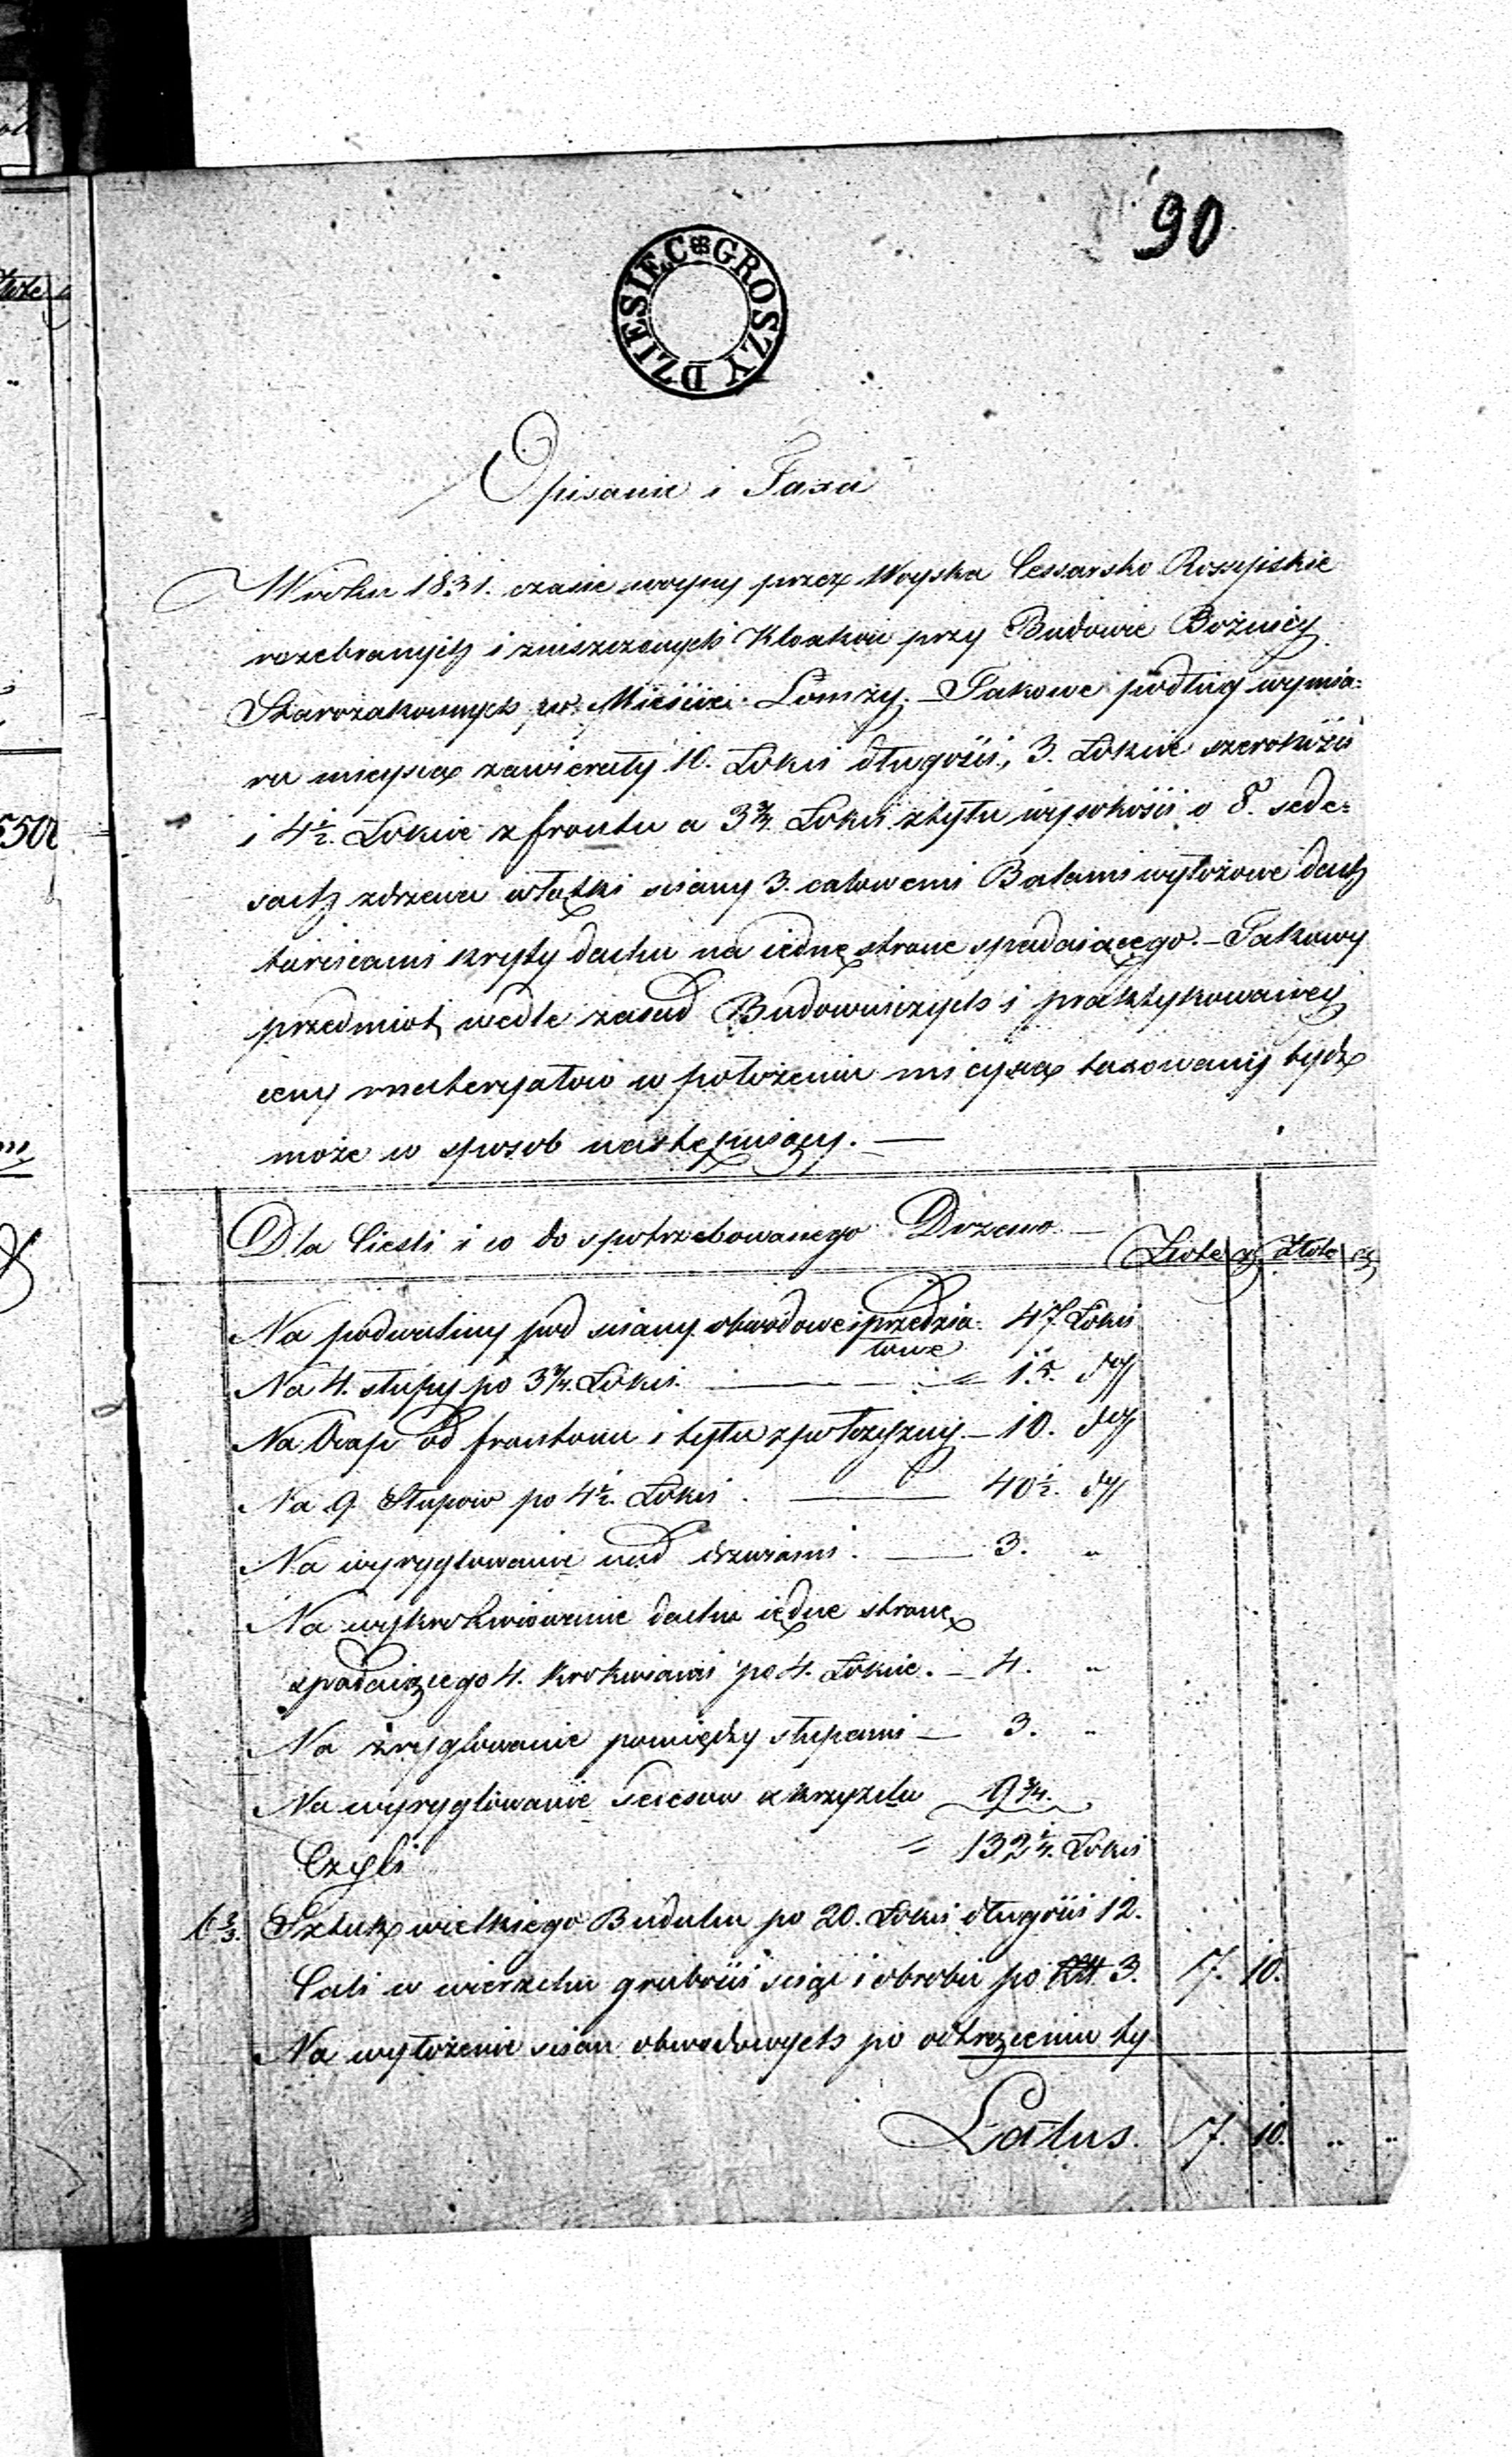 90
DZIESIĘC GROSZY
Opisanie i Taxa
W roku 1831. czasie woyny przez Woyska Cessarsko Rossyiskie
rozebranych i zniszczonych Kloakow przy Budowie Bożnicy
Starozakonnych w Mieście Łomży. – Takowe podług wymia:
ru mieysca zawierały 10. Łokci długości, 3. Łokcie szerokości
i 4½. Łokcie z frontu a 3¾ Łokci z tyłu wysokości o 8. sede:
sach z drzewa w łątki sciany 3. calowemi Balami wyłożone dach
tarcicami kryty dachu na iednę stronę spadaiącego. – Takowy
przedmiot wedle zasad Budowniczych i praktykowaney
ceny materyałow w położeniu mieysca taxowany bydz
może w sposob następuiący. —
Dla Cieśli i co do spotrzebowanego Drzewa. —
Złote gr Złote gr
Na podwaliny pod sciany obwodowe i przedzia: 47 Łokci
łowe
Na 4. słupy po 3¾. Łokci. — 15. dtt
Na Oczap od frontonu i tyłu z potrzyzny. – 10. dtt
Na 9 Słupow po 4½. Łokci. — 40½. dtt
Na wyryglowanie nad drzwiami. — 3. "
Na wykrokwiowanie dachu iedne stronę
spadaiącego 4. Krokwiami po 4. Łokcie. – 4. "
Na zryglowanie pomiędzy słupami — 3. "
Na wyryglowanie Sedesow z krzyzulu 9¾.
Czyli = 132¼. Łokci
6⅔. Sztuk wielkiego Budulcu po 20. Łokci długości 12.
Cali w wierzchu grubości scięcie i obrobie po 3. 17. 10.
Na wyłożenie scian obwodowych po odtrąceniu ty
Latus. 17. 10. " "
550